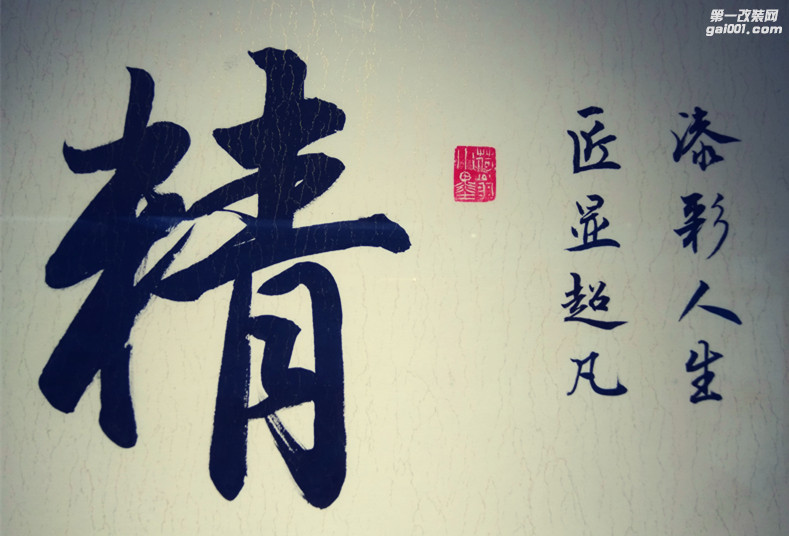 第一改装网
gai001.com
漆彩人生
匠显超凡
精